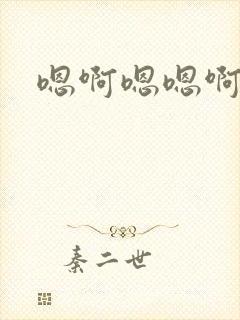 嗯啊嗯嗯啊
秦二世